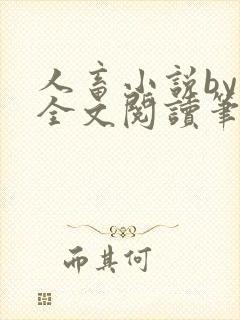 人畜小说by
全文閱讀筆
而其何